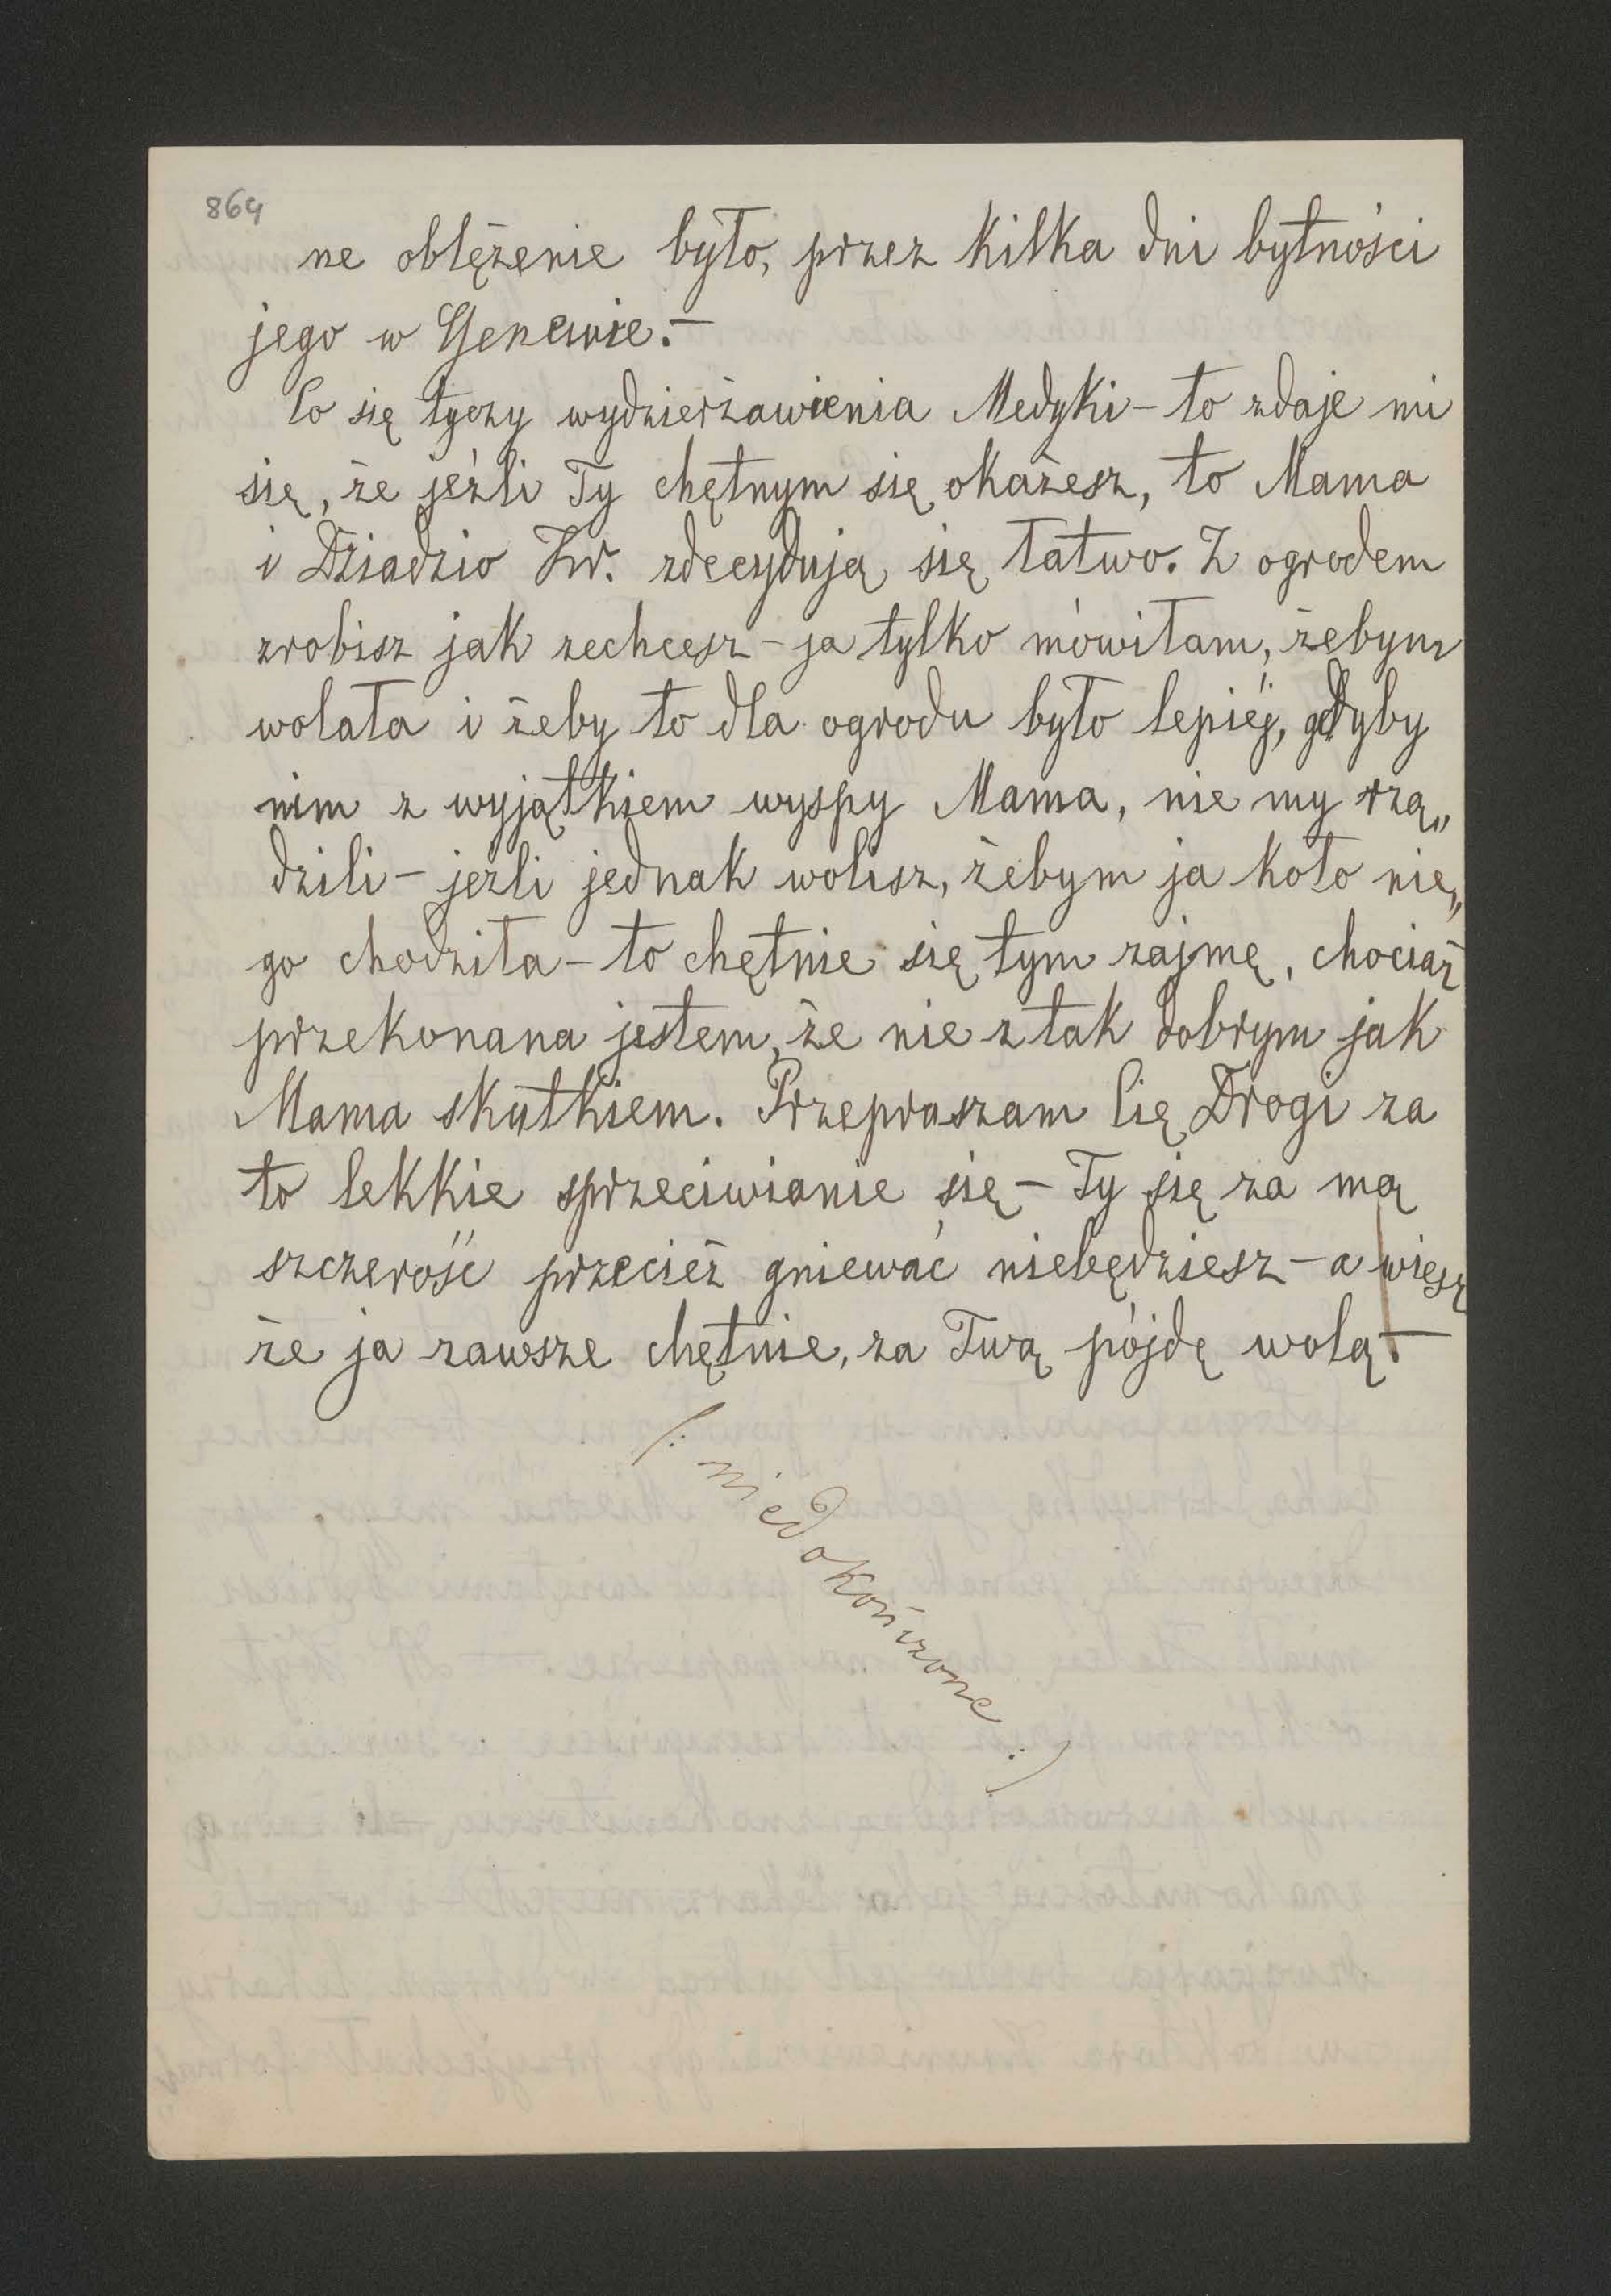 864
ne oblężenie było, przez kilka dni bytności
jego w Genewie.—
Co się tyczy wydzierżawienia Medyki – to zdaje mi
się, że jeźli Ty chętnym się okażesz, to Mama
i Dziadzio Zw. zdecydują się łatwo. Z ogrodem
zrobisz jak zechcesz – ja tylko mówiłam, żebym
wolała i żeby to dla ogrodu było lepiéj, gdyby
nim z wyjątkiem wyspy Mama, nie my rzą„
dzili – jeźli jednak wolisz, żebym ja koło nie„
go chodziła – to chętnie się tym zajmę, chociaż
przekonana jestem, że nie z tak dobrym jak
Mama skutkiem. Przepraszam Cię Drogi za
to lekkie sprzeciwianie się – Ty się za mą
szczerość przecież gniewać niebędziesz – a wiesz
że ja zawsze chętnie, za Twą pójdę wolą.—
(: niedokończone :)